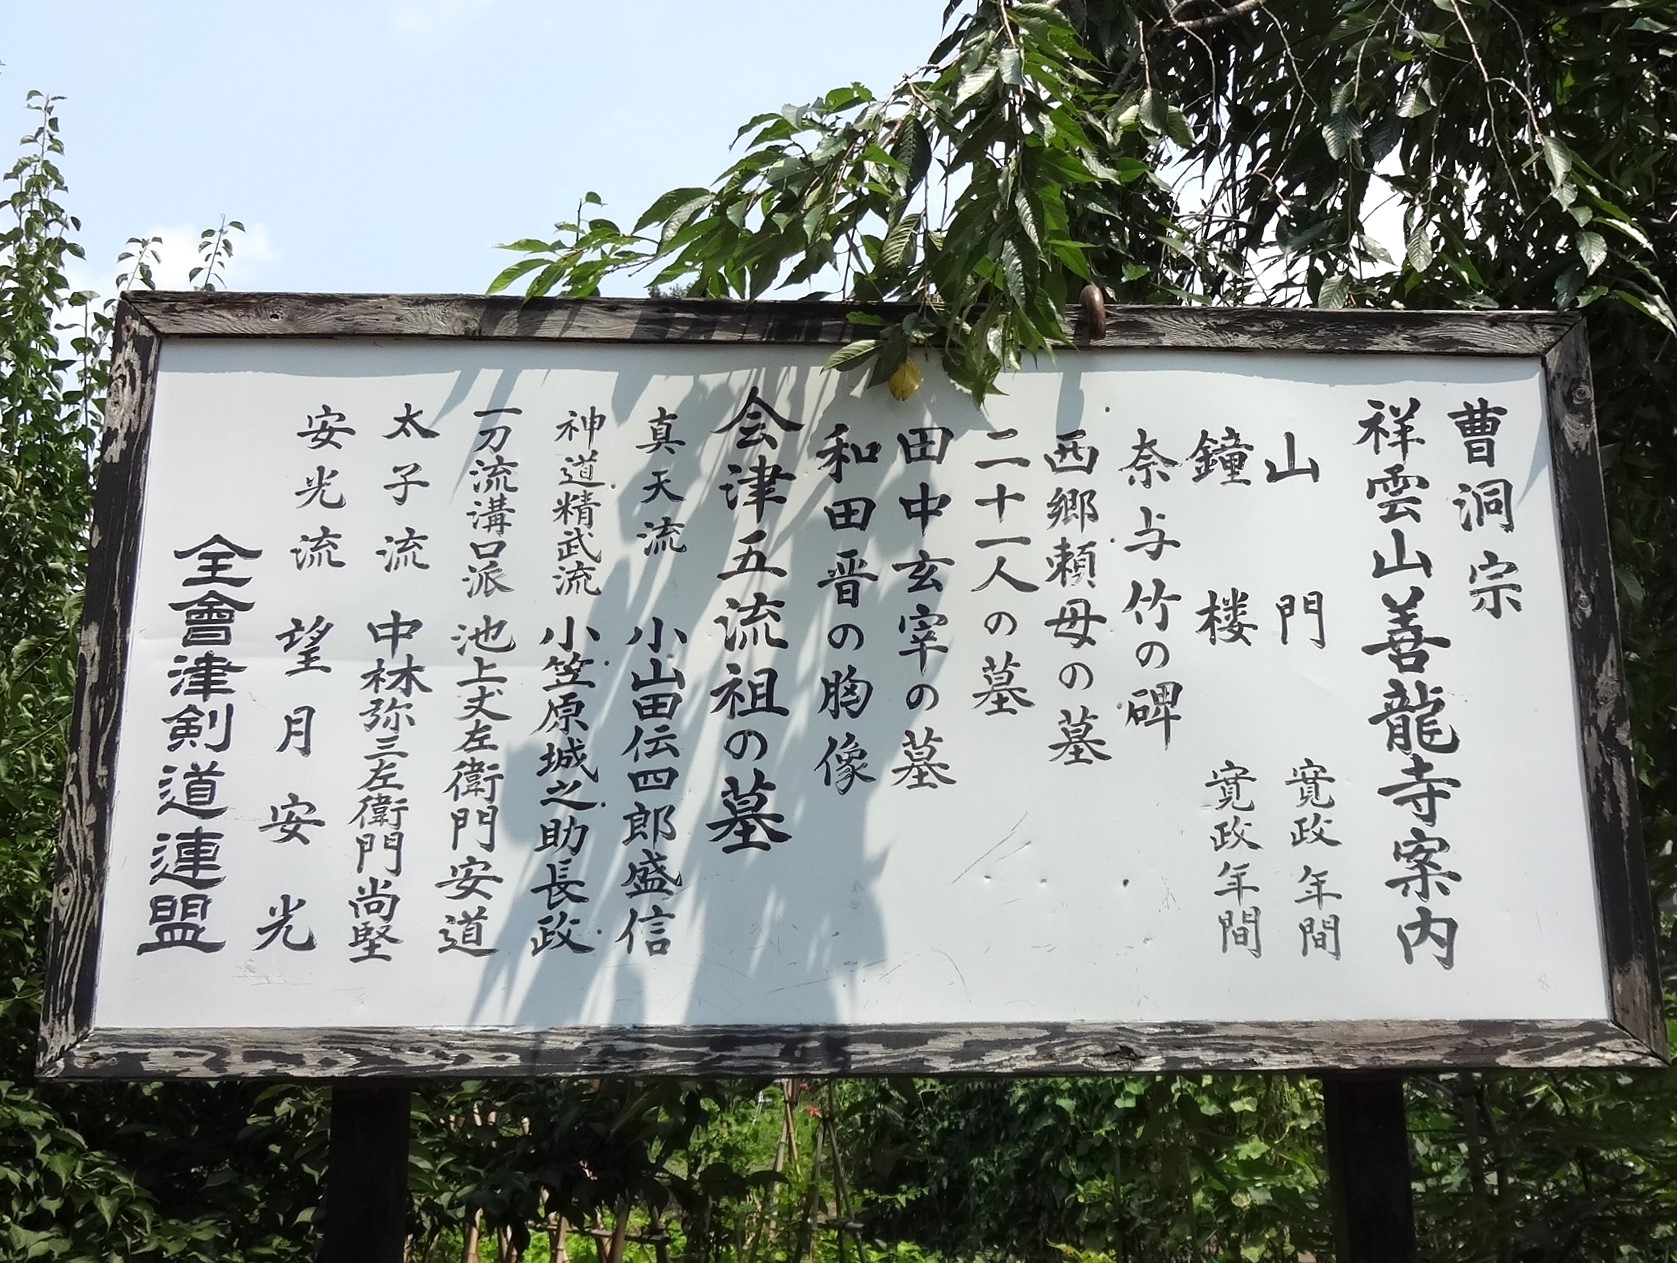 曹洞宗
祥雲山善龍寺案内
山門 寛政年間
鐘楼 寛政年間
奈与竹の碑
西郷頼母の墓
二十一人の墓
田中玄宰の墓
和田晋の胸像
会津五流祖の墓
真天流 小山田伝四郎盛信
神道精武流 小笠原城之助長政
一刀流溝口派 池上丈左衛門安道
太子流 中林弥三左衛門尚堅
安光流 望月安光
全會津剣道連盟